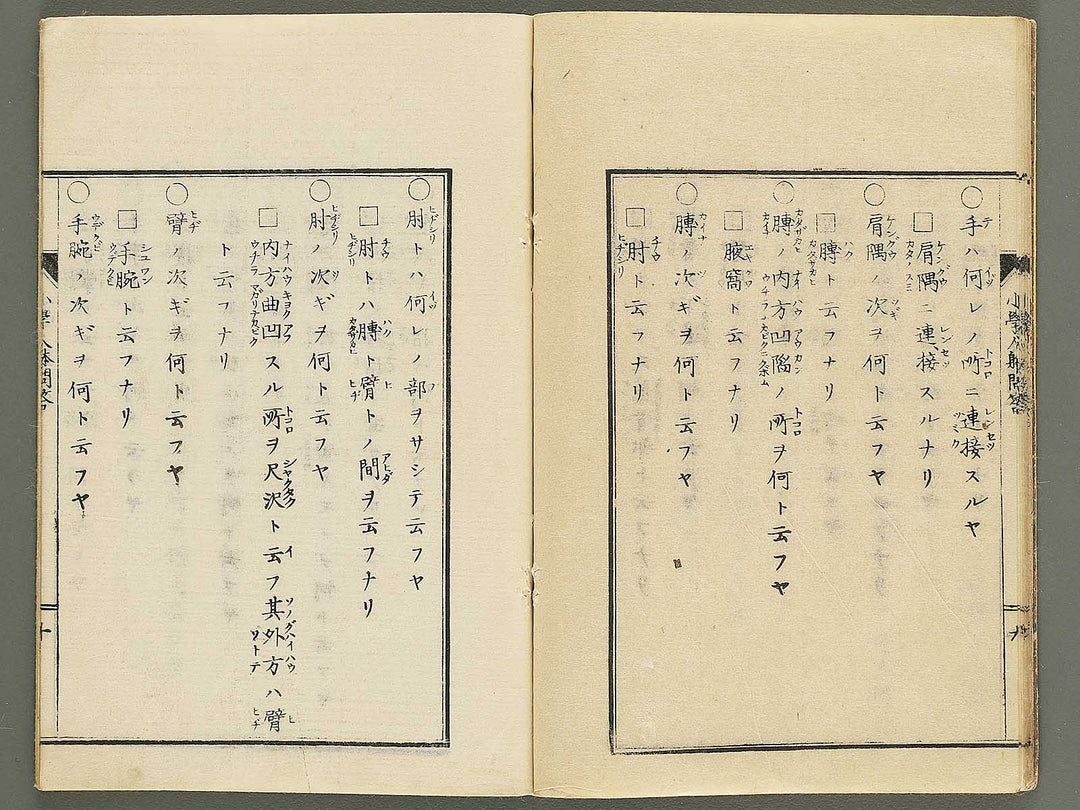 ○手ハ何レノ所ニ連接スルヤ
□肩隅ニ連接スルナリ
○肩隅ノ次ヲ何ト云フヤ
□膊ト云フナリ
○膊ノ内方凹陥ノ所ヲ何ト云フヤ
□腋窩ト云フナリ
○膊ノ次ヲ何ト云フヤ
□肘ト云フナリ
○肘トハ何レノ部ヲサシテ云フヤ
□肘トハ膊ト臂トノ間ヲ云フナリ
○肘ノ次ギヲ何ト云フヤ
□内方曲凹スル所ヲ尺沢ト云フ其外方ハ臂
ト云フナリ
○臂ノ次ギヲ何ト云フヤ
□手腕ト云フナリ
○手腕ノ次ギヲ何ト云フヤ